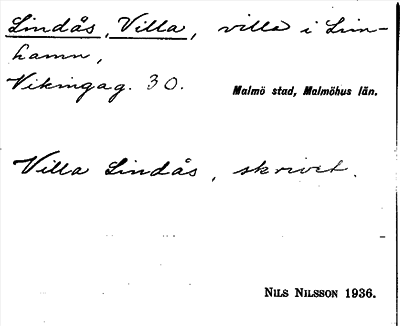 Lindås, Villa, villa i Lim-
hamn,
Vikingag. 30.
Malmö stad, Malmöhus län.
Villa Lindås, skrivet.
NILS NILSSON 1936.